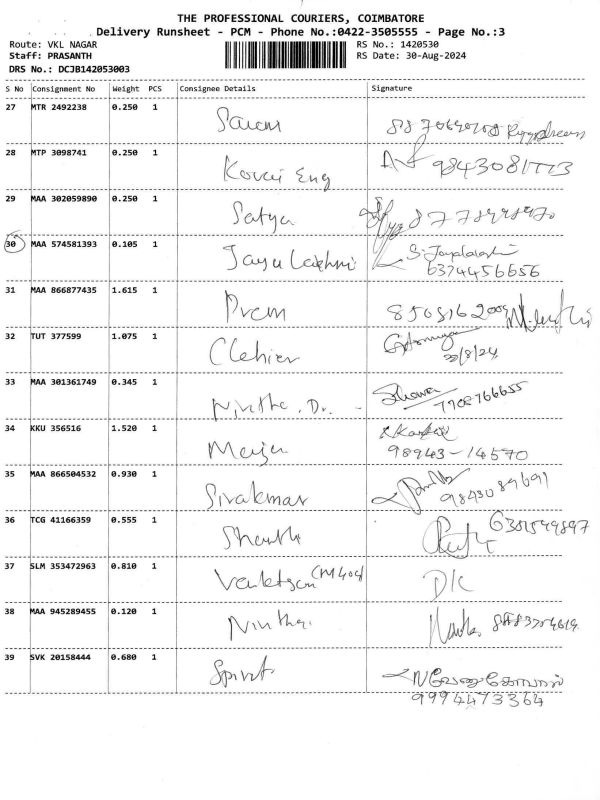 THE PROFESSIONAL COURIERS, COIMBATORE
Delivery Runsheet - PCM - Phone No.:0422-3505555 - Page No.:3
Route: VKL NAGAR RS No.: 1420530
Staff: PRASANTH RS Date: 30-Aug-2024
DRS No.: DCJB142053003
S No Consignment No Weight PCS Consignee Details Signature
27 MTR 2492238 0.250 1
28 MTP 3098741 0.250 1
Kovai Eng
29 MAA 302059890 0.250 1
Satya
30 MAA 574581393 0.105 1
Jaya Lakshmi
6374456656
31 MAA 866877435 1.615 1
Prem
32 TUT 377599 1.075 1
33 MAA 301361749 0.345 1
Dr.
7708766655
34 KKU 356516 1.520 1
98943-14570
35 MAA 866504532 0.930 1
Sivakmar
9843089691
36 TCG 41166359 0.555 1
37 SLM 353472963 0.810 1
DK
38 MAA 945289455 0.120 1
39 SVK 20158444 0.680 1
9994473364